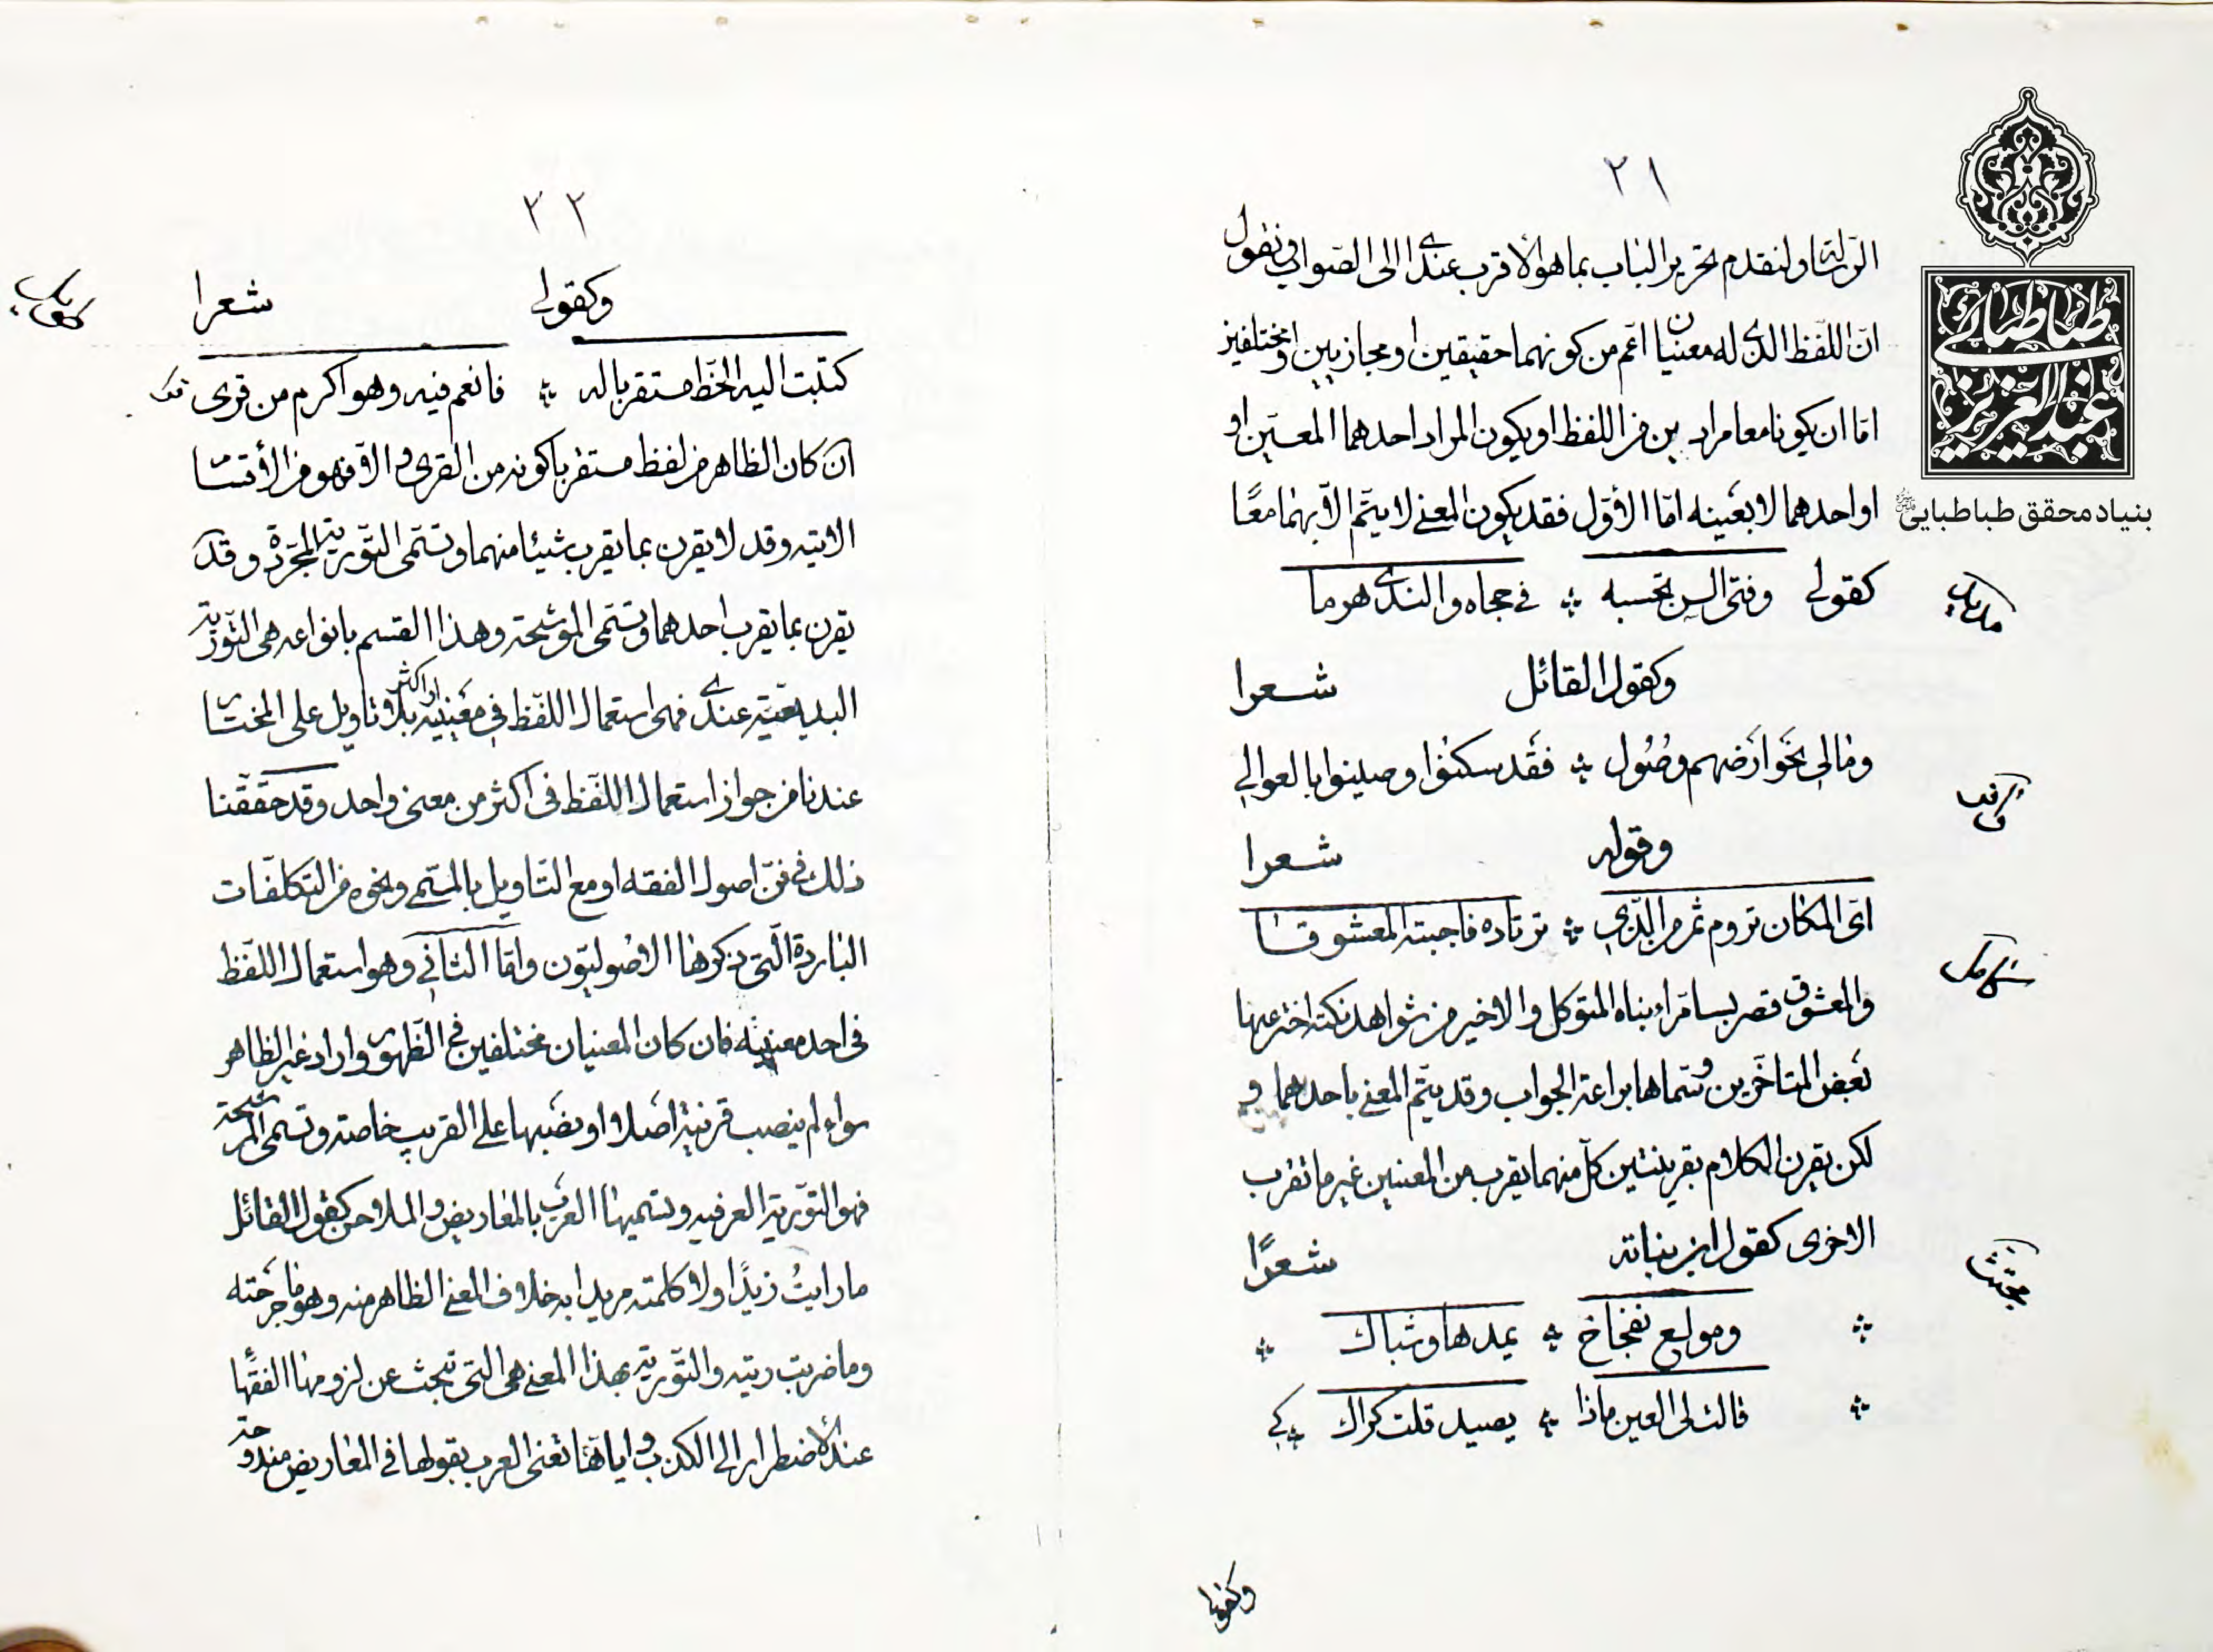 ٢١
الرسالة ولنقدم تحرير الباب بما هو الأقرب عندي الى الصواب فنقول
انّ اللفظ الذي له معنيان اعمّ من كونهما حقيقين او مجازيين او مختلفين
امّا ان يكونا معا مرادين من اللفظ او يكون المراد احدهما المعيّن او
او احدهما لا بعينه امّا الأوّل فقد يكون المعنى لا يتمّ الّا بهما معًا
كقولي وفتى السن تحسبه ؞ في حجاه والندى هرما
وكقول القائل شعرا
ومالي بخوارضهم وصُول ؞ فقد سكنوا وصينوا بالعوالي
وقوله شعرا
ايّ المكان تروم ثم من الّذي ؞ ترتاده فاجبته المعشوقا
والمعشوق قصر بسامرّاء بناه المتوكل والاخير من شواهد نكتة اخترعها
بعض المتاخّرين وسمّاها براعة الجواب وقد يتمّ المعنى باحدهما و
لكن يقرن الكلام بقرينتين كلّ منهما يقرب من المعنيين غير ما تقرب
الاخرى كقول ابن نباتة شعرًا
؞ ومولع بفخاخ ؞ يمدها وشباك ؞
؞ قالت لي العين ماذا ؞ يصيد قلت كراك ؞
وكقولي
مجتث
٢٢
وكقولي شعرا
كتبت اليه الخط مستقربا له ؞ فانعم فيه وهو اكرم من قرى
ان كان الظاهر من لفظ مستقربا كونه من القرى والّا فهو من الأقسام
الاتيه وقد لا يقرن بما يقرب شيئا منهما وتسمّى التّورية المجرّدة وقد
يقرن بما يقرب احدهما وتسمّى الموشحة وهذا القسم بانواعه هي التّورية
البديعيّة عندي فهي استعمال اللفظ في معنييه او اكثر بلا تاويل على المختار
عندنا من جواز استعمال اللّفظ في اكثر من معنى واحد وقد حقّقنا
ذلك في فنّ اصول الفقه او مع التّاويل بالمسمّى ونحوه من التكلّفات
الباردة الّتي ذكرها الاصوليّون وامّا الثاني وهو استعمال اللفظ
في احد معنييه فان كان المعنيان مختلفين في الظّهور واراد غير الظاهر
سواء لم ينصب قرينة اصلا او نصبها على القريب خاصة وتسمى المرشحة
فهو التوّرية العرفيه وتسميها العرب بالمعاريض والملاحن كقول القائل
ما رايتُ زيدًا ولا كلمته مريدا به خلاف المعنى الظاهر منه وهو ما جرحته
وما ضربت ريته والتّورية بهذا المعنى هي التي تبحث عن لزومها الفقها
عند الأضطرار الى الكذب واياها تعنى العرب بقولها في المعاريض مندوحة